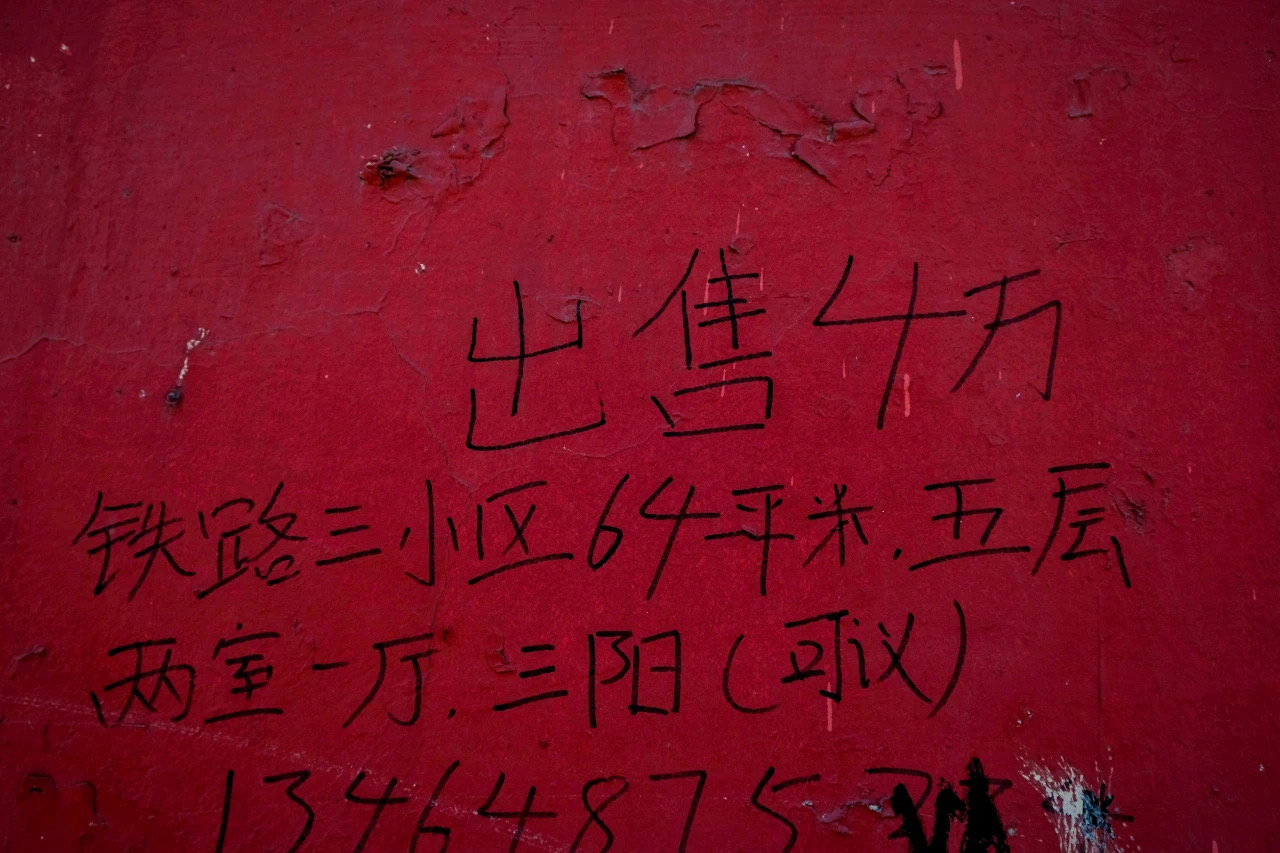 出售4万
铁路三小区64平米.五层
两室一厅.三阳(可议)
134648757